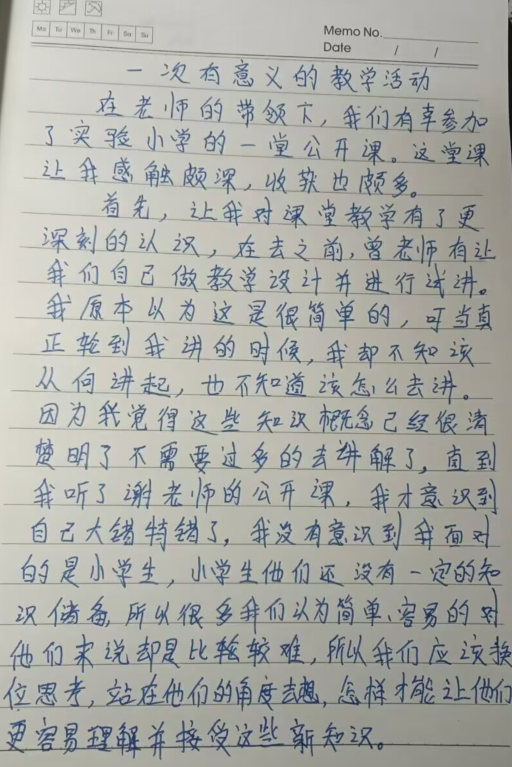 Memo No.
Date / /
Mo Tu We Th Fr Sa Su
一次有意义的教学活动
在老师的带领下，我们有幸参加
了实验小学的一堂公开课。这堂课
让我感触颇深，收获也颇多。
首先，让我对课堂教学有了更
深刻的认识，在去之前，曾老师有让
我们自己做教学设计并进行试讲。
我原本以为这是很简单的，可当真
正轮到我讲的时候，我却不知该
从何讲起，也不知道该怎么去讲。
因为我觉得这些知识概念已经很清
楚明了不需要过多的去讲解了，直到
我听了谢老师的公开课，我才意识到
自己大错特错了，我没有意识到我面对
的是小学生，小学生他们还没有一定的知
识储备，所以很多我们认为简单、容易的对
他们来说却是比较较难，所以我们应该换
位思考，站在他们的角度去想，怎样才能让他们
更容易理解并接受这些新知识。